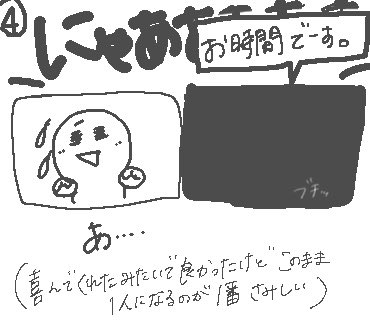 ④
にゃあああああ
お時間でーす。
ブチッ
あ....
(喜んでくれたみたいで良かったけど このまま
1人になるのが1番 さみしい)